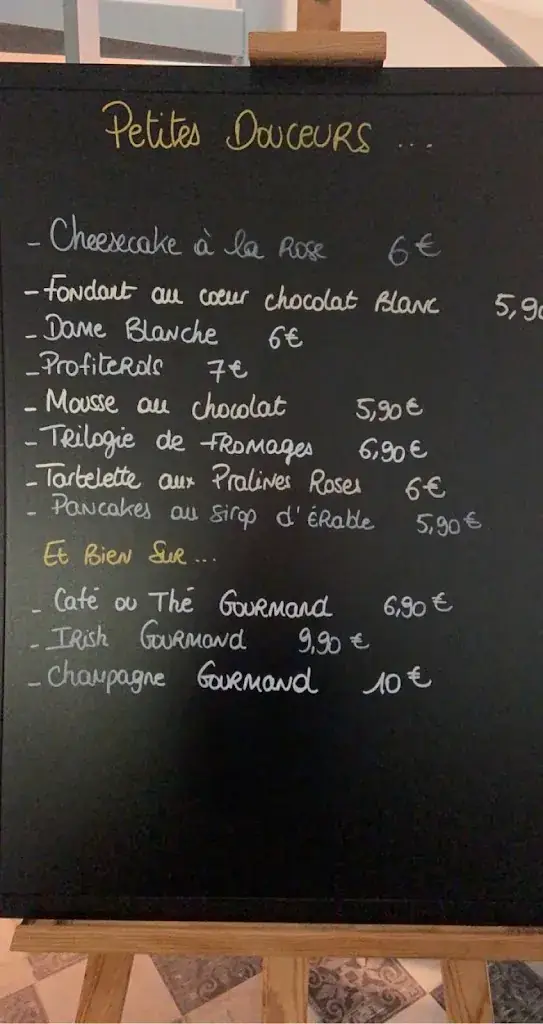 Petites Douceurs ...
- Cheesecake à la Rose 6€
- Fondant au coeur chocolat Blanc 5,90
- Dame Blanche 6€
- Profiterols 7€
- Mousse au chocolat 5,90€
- Trilogie de fromages 6,90€
- Tartelette aux Pralines Roses 6€
- Pancakes au Sirop d'érable 5,90€
Et Bien Sur ...
- Café ou Thé Gourmand 6,90€
- Irish Gourmand 9,90€
- Champagne Gourmand 10€